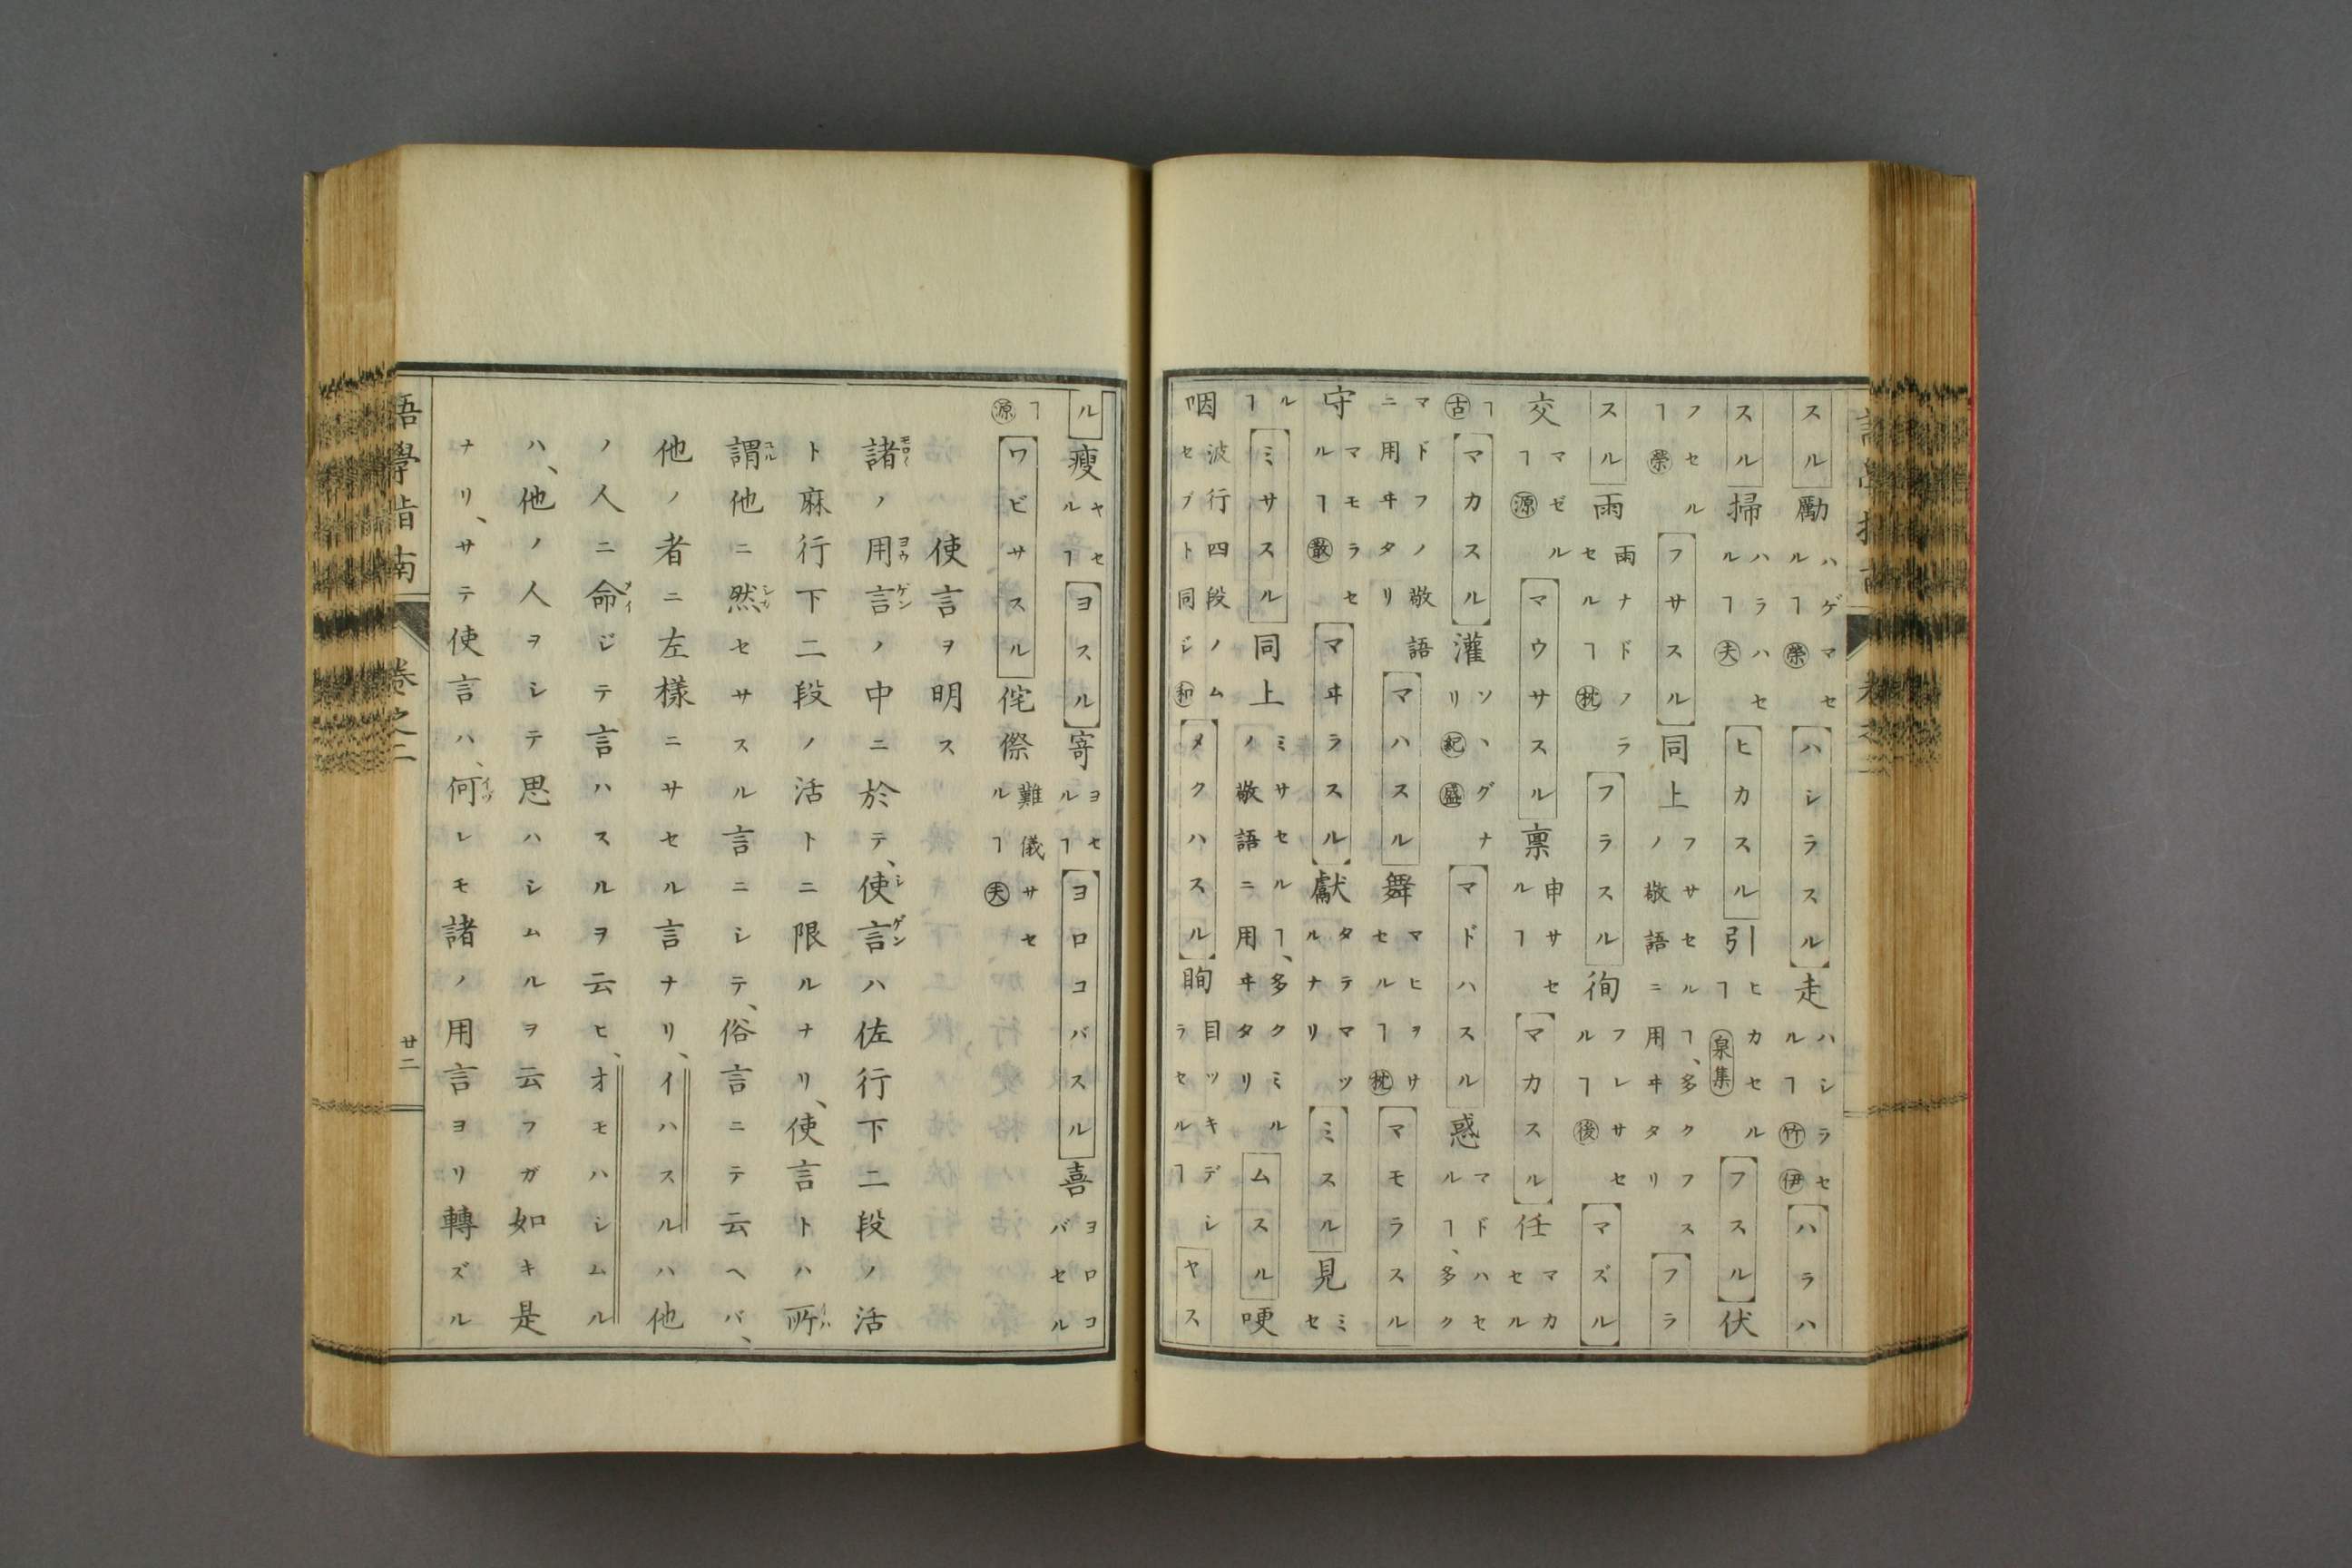 スル勵ハゲマセルヿ榮ハシラスル走ハシラセルヿ竹伊ハラハ
スル掃ハラハセルヿ夫ヒカスル引ヒカセルヿ泉集フスル伏
フセルヿ榮フサスル同上フサセルヿ、多クフスノ敬語ニ用ヰタリフラ
スル雨雨ナドノフラセルヿ枕フラスル徇フレサセルヿ後マズル
交マゼルヿ源マウサスル稟申サセルヿマカスル任マカセル
ヿ古マカスル灌ソヽグナリ紀盛マドハスル惑マドハセルヿ、多ク
マドフノ敬語ニ用ヰタリマハスル舞マヒヲサセルヿ枕マモラスル
守マモラセルヿ散マヰラスル獻タテマツルナリミスル見ミセ
ルヿミサスル同上ミサセルヿ、多クミルノ敬語ニ用ヰタリムスル哽
咽波行四段ノムセブト同ジ和メクハスル眴目ツキデシラセルヿヤス
ル瘦ヤセルヿヨスル寄ヨセルヿヨロコバスル喜ヨロコバセル
ヿ源ワビサスル侘傺難儀サセルヿ夫
使言ヲ明ス
諸ノ用言ノ中ニ於テ、使言ハ佐行下二段ノ活
ト麻行下二段ノ活トニ限ルナリ、使言トハ所
謂他ニ然セサスル言ニシテ、俗言ニテ云ヘバ、
他ノ者ニ左樣ニサセル言ナリ、イハスルハ他
ノ人ニ命ジテ言ハスルヲ云ヒ、オモハシムル
ハ、他ノ人ヲシテ思ハシムルヲ云フガ如キ是
ナリ、サテ使言ハ、何レモ諸ノ用言ヨリ轉ズル
語學指南 卷之二 廿二